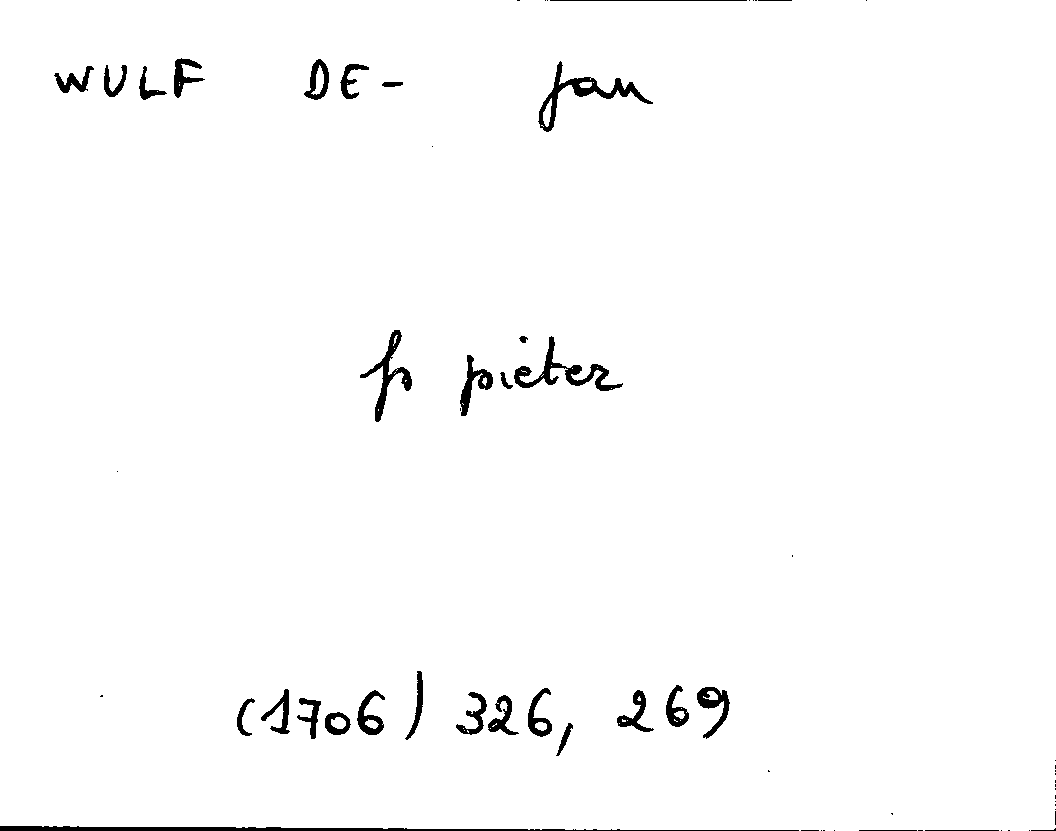 WULF DE- Jan
fs pieter
(1706) 326, 269